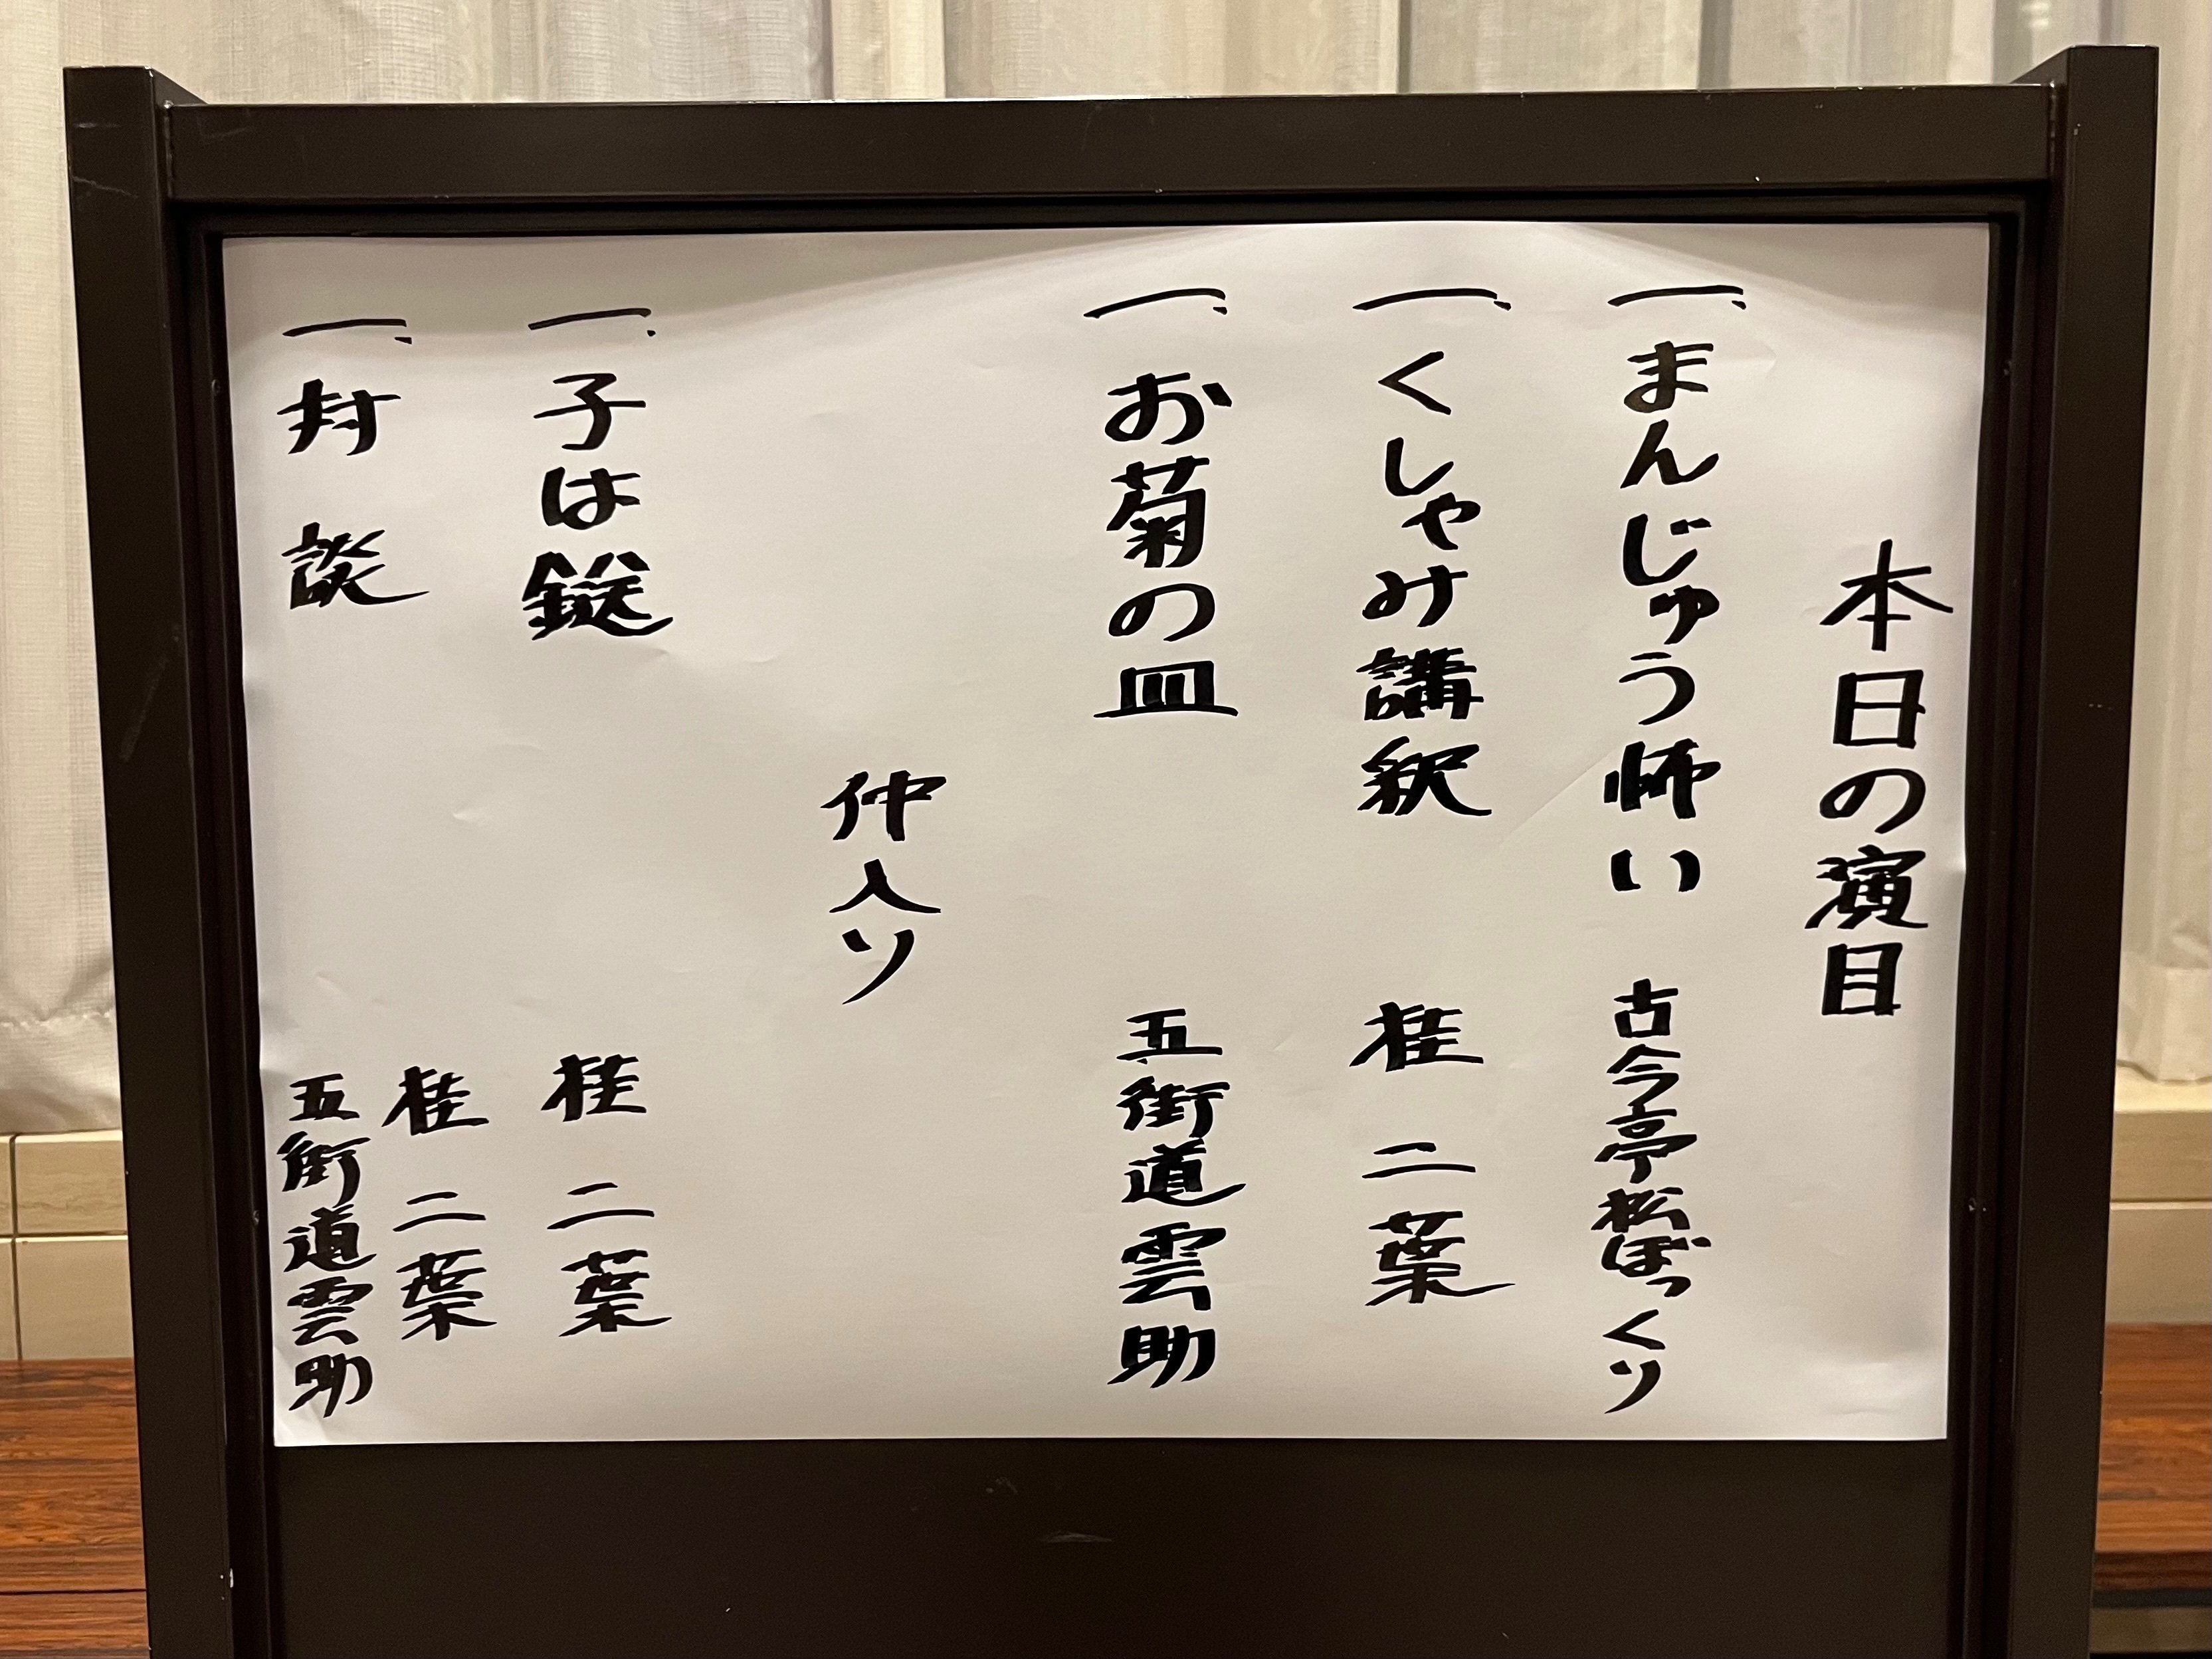 本日の演目
一、まんじゅう怖い 古今亭松ぼっくり
一、くしゃみ講釈 桂二葉
一、お菊の皿 五街道雲助
仲入り
一、子は鎹 桂二葉
一、対談 桂二葉
五街道雲助